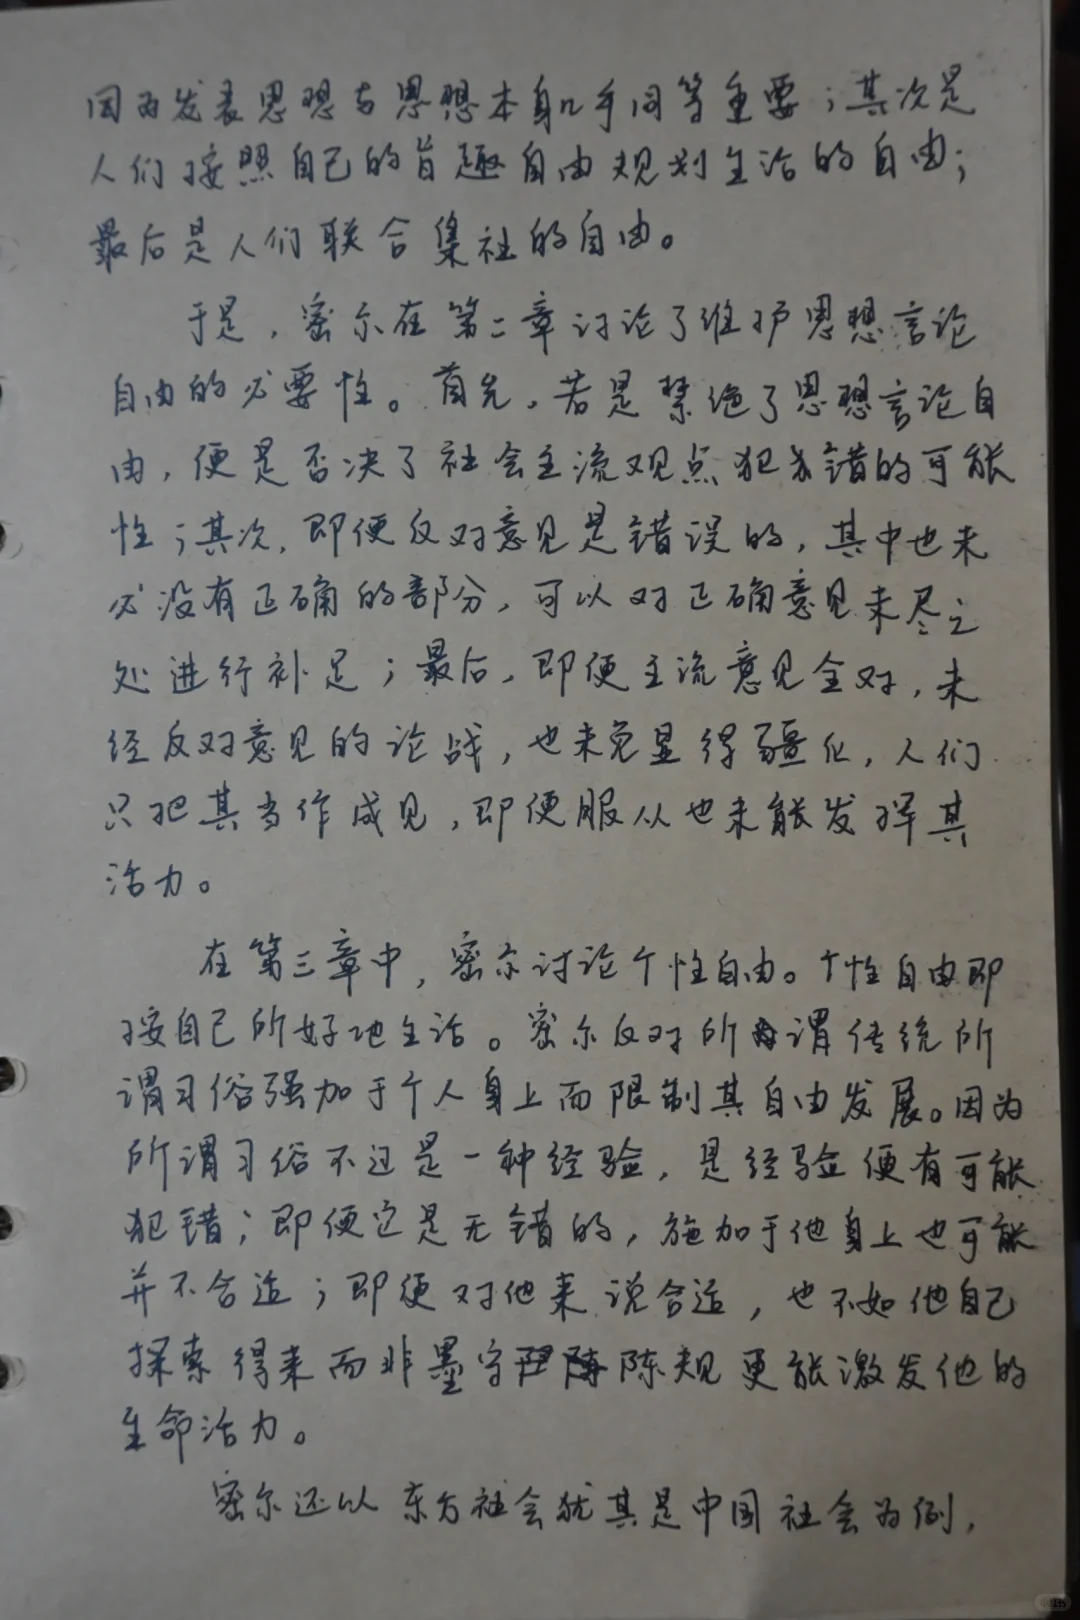 因为发表思想与思想本身几乎同等重要；其次是
人们按照自己的旨趣自由规划生活的自由；
最后是人们联合集社的自由。
于是，密尔在第二章讨论了维护思想言论
自由的必要性。首先，若是禁绝了思想言论自
由，便是否决了社会主流观点犯错的可能
性；其次，即便反对意见是错误的，其中也未
必没有正确的部分，可以对正确意见未尽之
处进行补足；最后，即便主流意见全对，未
经反对意见的论战，也未免显得疆化，人们
只把其当作成见，即便服从也未能发挥其
活力。
在第三章中，密尔讨论个性自由。个性自由即
按自己所好地生活。密尔反对所谓传统所
谓习俗强加于个人身上而限制其自由发展。因为
所谓习俗不过是一种经验，是经验便有可能
犯错；即便它是无错的，施加于他身上也可能
并不合适；即便对他来说合适，也不如他自己
探索得来而非墨守陈规更能激发他的
生命活力。
密尔还以东方社会犹其是中国社会为例，